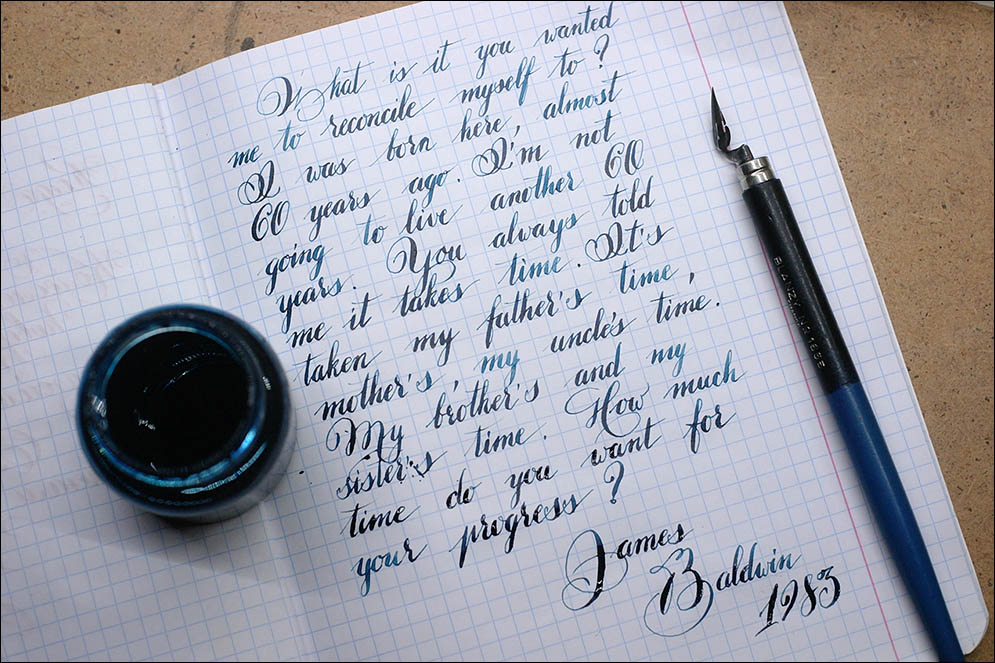 What is it you wanted
me to reconcile myself to?
I was born here, almost
60 years ago. I'm not
going to live another 60
years. You always told
me it takes time. It's
taken my father's time,
mother's, my uncle's time.
My brother's and my
sister's time. How much
time do you want for
your progress?
James
Baldwin
1983
BLANZY